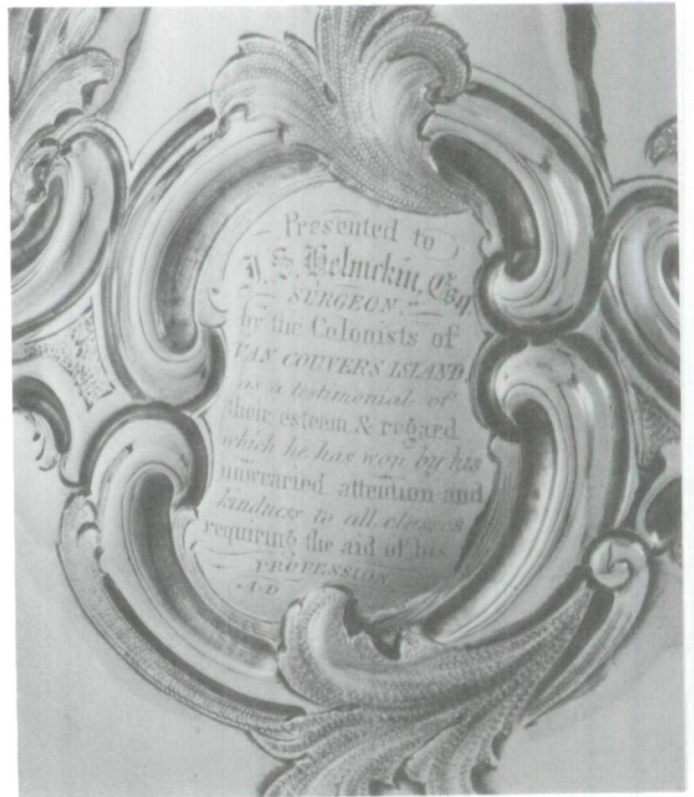 Presented to
J. S. Helmckin, Esq
SURGEON
by the Colonists of
VAN COUVERS ISLAND
as a testimonial of
their esteem & regard
which he has won by his
unwearied attention and
kindness to all classes
requiring the aid of his
PROFESSION
A.D